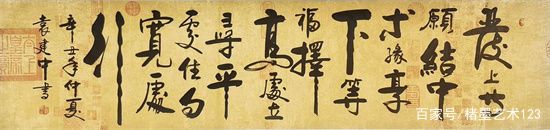 發上等
願結中
等緣享
下等
福擇
高處立
尋平
處住向
寬處
行
辛丑年仲夏
袁建中書
百家号/楮墨艺术123